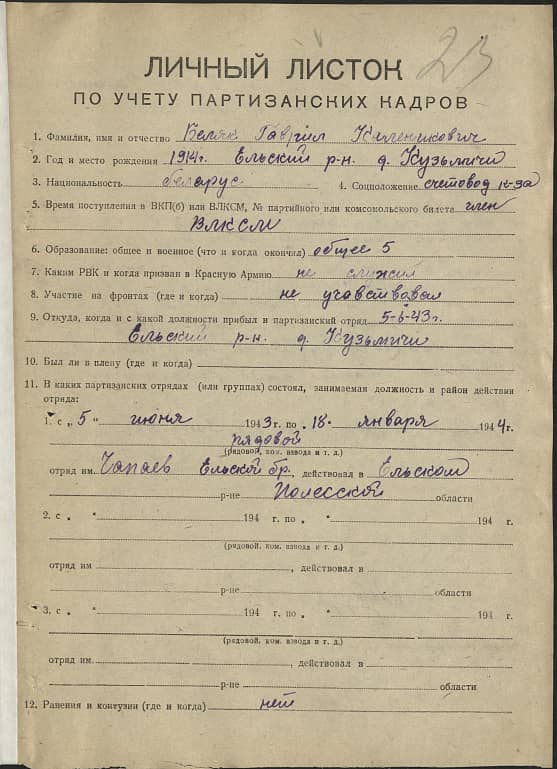 23
ЛИЧНЫЙ ЛИСТОК
ПО УЧЕТУ ПАРТИЗАНСКИХ КАДРОВ
1. Фамилия, имя и отчество Беляк Гаврил Каленикович
2. Год и место рождения 1914г. Ельский р-н. д. Кузьмичи
3. Национальность беларус 4. Соцположение счетовод к-за
5. Время поступления в ВКП(б) или ВЛКСМ, № партийного или комсомольского билета член
ВЛКСМ
6. Образование: общее и военное (что и когда окончил) общее 5
7. Каким РВК и когда призван в Красную Армию не служил
8. Участие на фронтах (где и когда) не учавствовал
9. Откуда, когда и с какой должности прибыл в партизанский отряд 5-6-43г.
Ельский р-н. д. Кузьмичи
10. Был ли в плену (где и когда)
11. В каких партизанских отрядах (или группах) состоял, занимаемая должность и район действии
отряда:
1. с „ 5 " июня 1943г. по „ 18 " января 1944г.
рядовой
(рядовой, ком. взвода и т. д.)
отряд им. Чапаев Ельской бр., действовал в Ельском
р-не Полесской области
2. с „ " 194 г. по „ " 194 г.
(рядовой, ком. взвода и т. д.)
отряд им , действовал в
р-не области
3. с „ " 194 г. по „ " 194 г.
(рядовой, ком. взвода и т. д.)
отряд им. , действовал в
р-не области
12. Ранения и контузии (где и когда) нет